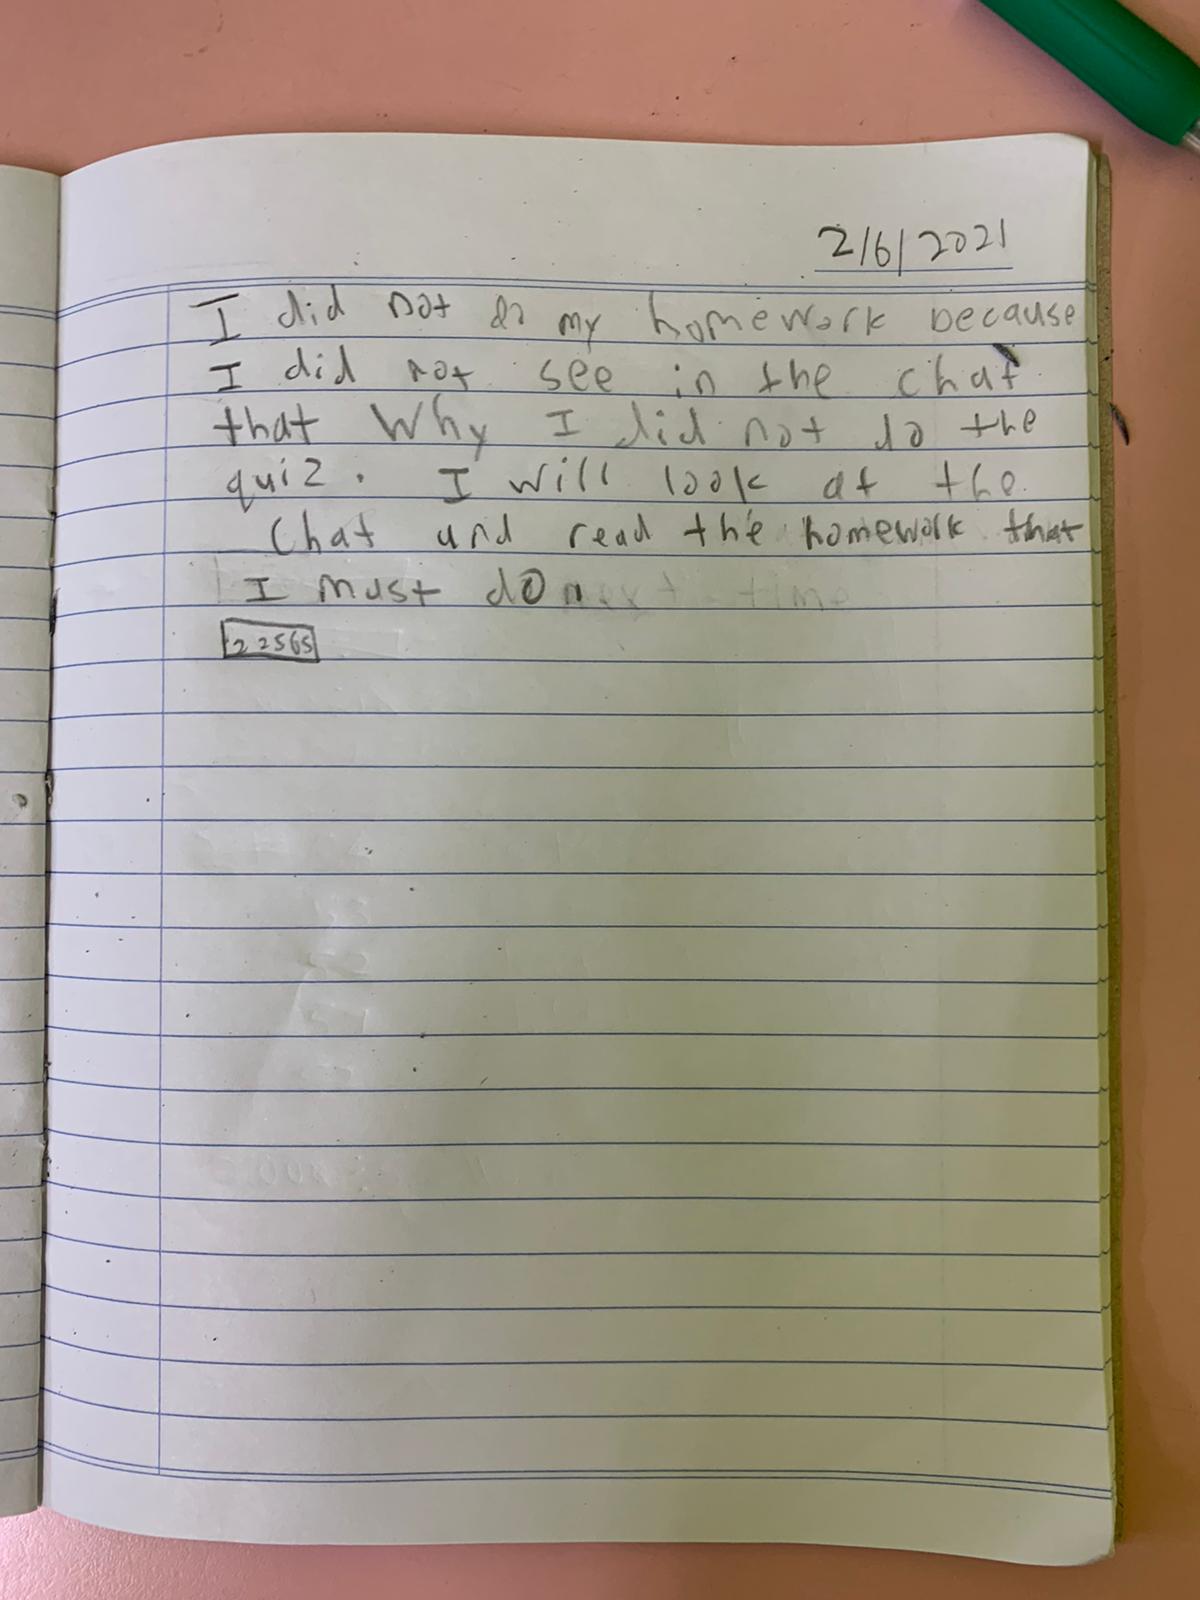 2/6/2021
I did not do my homework because
I did not see in the chat
that Why I did not do the
quiz. I will look at the
Chat and read the homework that
I must do next time
22565